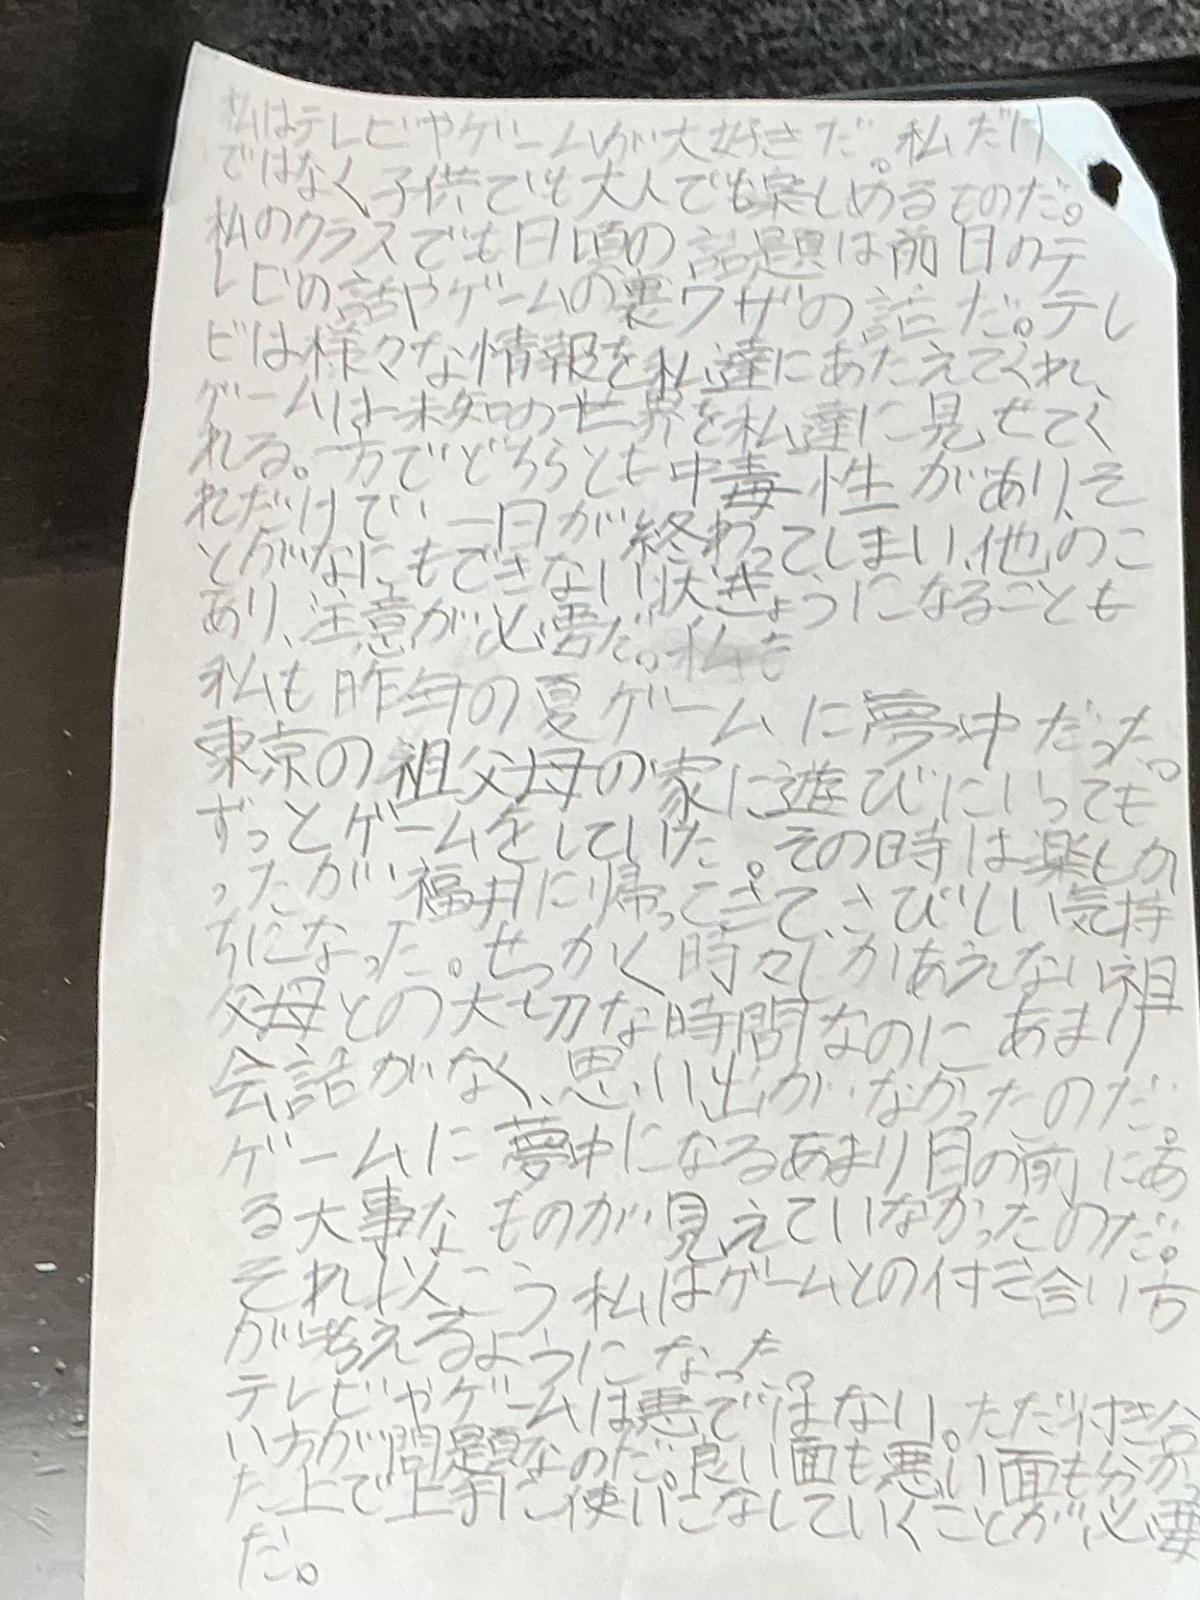 私はテレビやゲームが大好きだ。私だけ
ではなく子供でも大人でも楽しめるものだ。
私のクラスでも日頃の話題は前日のテ
レビの話やゲームの裏ワザの話だ。テレ
ビは様々な情報を私達にあたえてくれ、
ゲームは未知の世界を私達に見せてく
れる。一方でどちらとも中毒性があり、そ
れだけで一日が終わってしまい、他のこ
とがなにもできない状きょうになることも
あり、注意が必要だ。私も
私も昨年の夏ゲームに夢中だった。
東京の祖父母の家に遊びにいっても
ずっとゲームをしていた。その時は楽しか
ったが福井に帰ってきて、さびしい気持
ちになった。せっかく時々しかあえない祖
父母との大切な時間なのにあまり
会話がなく、思い出がなかったのだ。
ゲームに夢中になるあまり目の前にあ
る大事なものが見えていなかったのだ。
それ以こう私はゲームとの付き合い方
が考えるようになった。
テレビやゲームは悪ではない。ただ付き合
い方が問題なのだ。良い面も悪い面も分か
た上で上手に使いこなしていくことが必要
だ。